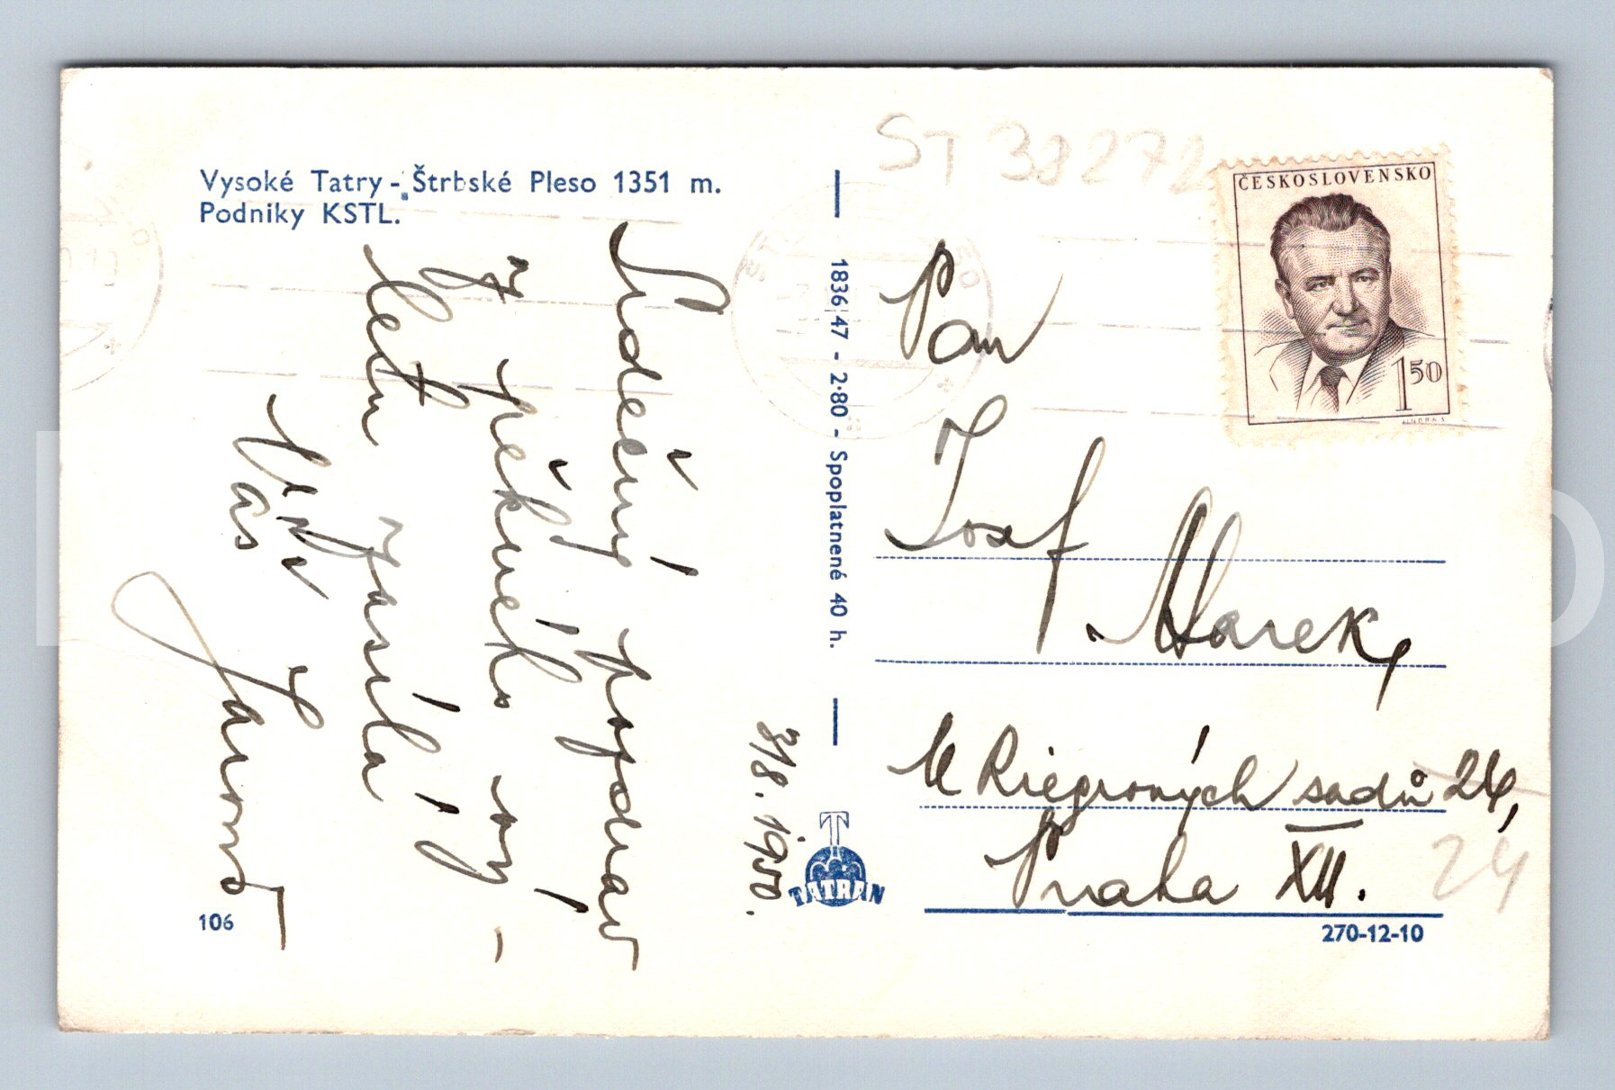 Vysoké Tatry - Štrbské Pleso 1351 m.
Podniky KSTL.
Srdečný pozdrav
z pěkného vý-
letu zasílá
Váš
3/8. 1950.
106
1836/47 - 2·80 - Spoplatnené 40 h.
TATRAN
ST 38272
ČESKOSLOVENSKO
1 50
Pan
Josef Marek,
U Riegrových sadů 24,
Praha XII.
24
270-12-10